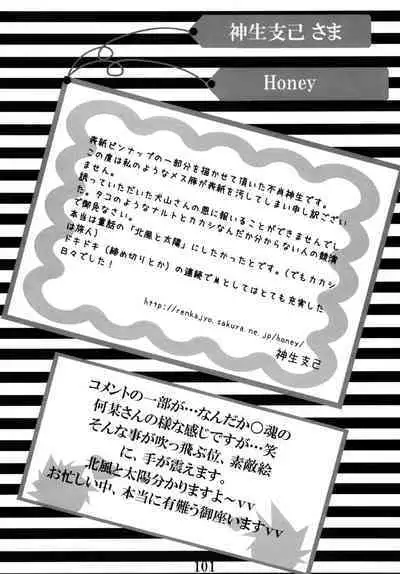 神生支己 さま
Honey
表紙ピンナップの一部分を描かせて頂いた不肖神生です。
この度は私のようなメス豚が表紙を汚してしまい申し訳ござい
ません。
誘っていただいた犬山さんの恩に報いることができませんでし
た。タコのようなナルトとカカシなんだか分からない人の競演
で御免なさい。
本当は童話の「北風と太陽」にしたかったとです。(でもカカシ
は旅人)
ドキドキ(締め切りとか)の連続でMとしてはとても充実した
日々でした!
http://renkajyo.sakura.ne.jp/honey/
神生支己
コメントの一部が…なんだか〇魂の
何某さんの様な感じですが…笑
そんな事が吹っ飛ぶ位、素敵絵
に、手が震えます。
北風と太陽分かりますよ~vv
お忙しい中、本当に有難う御座いますvv
101